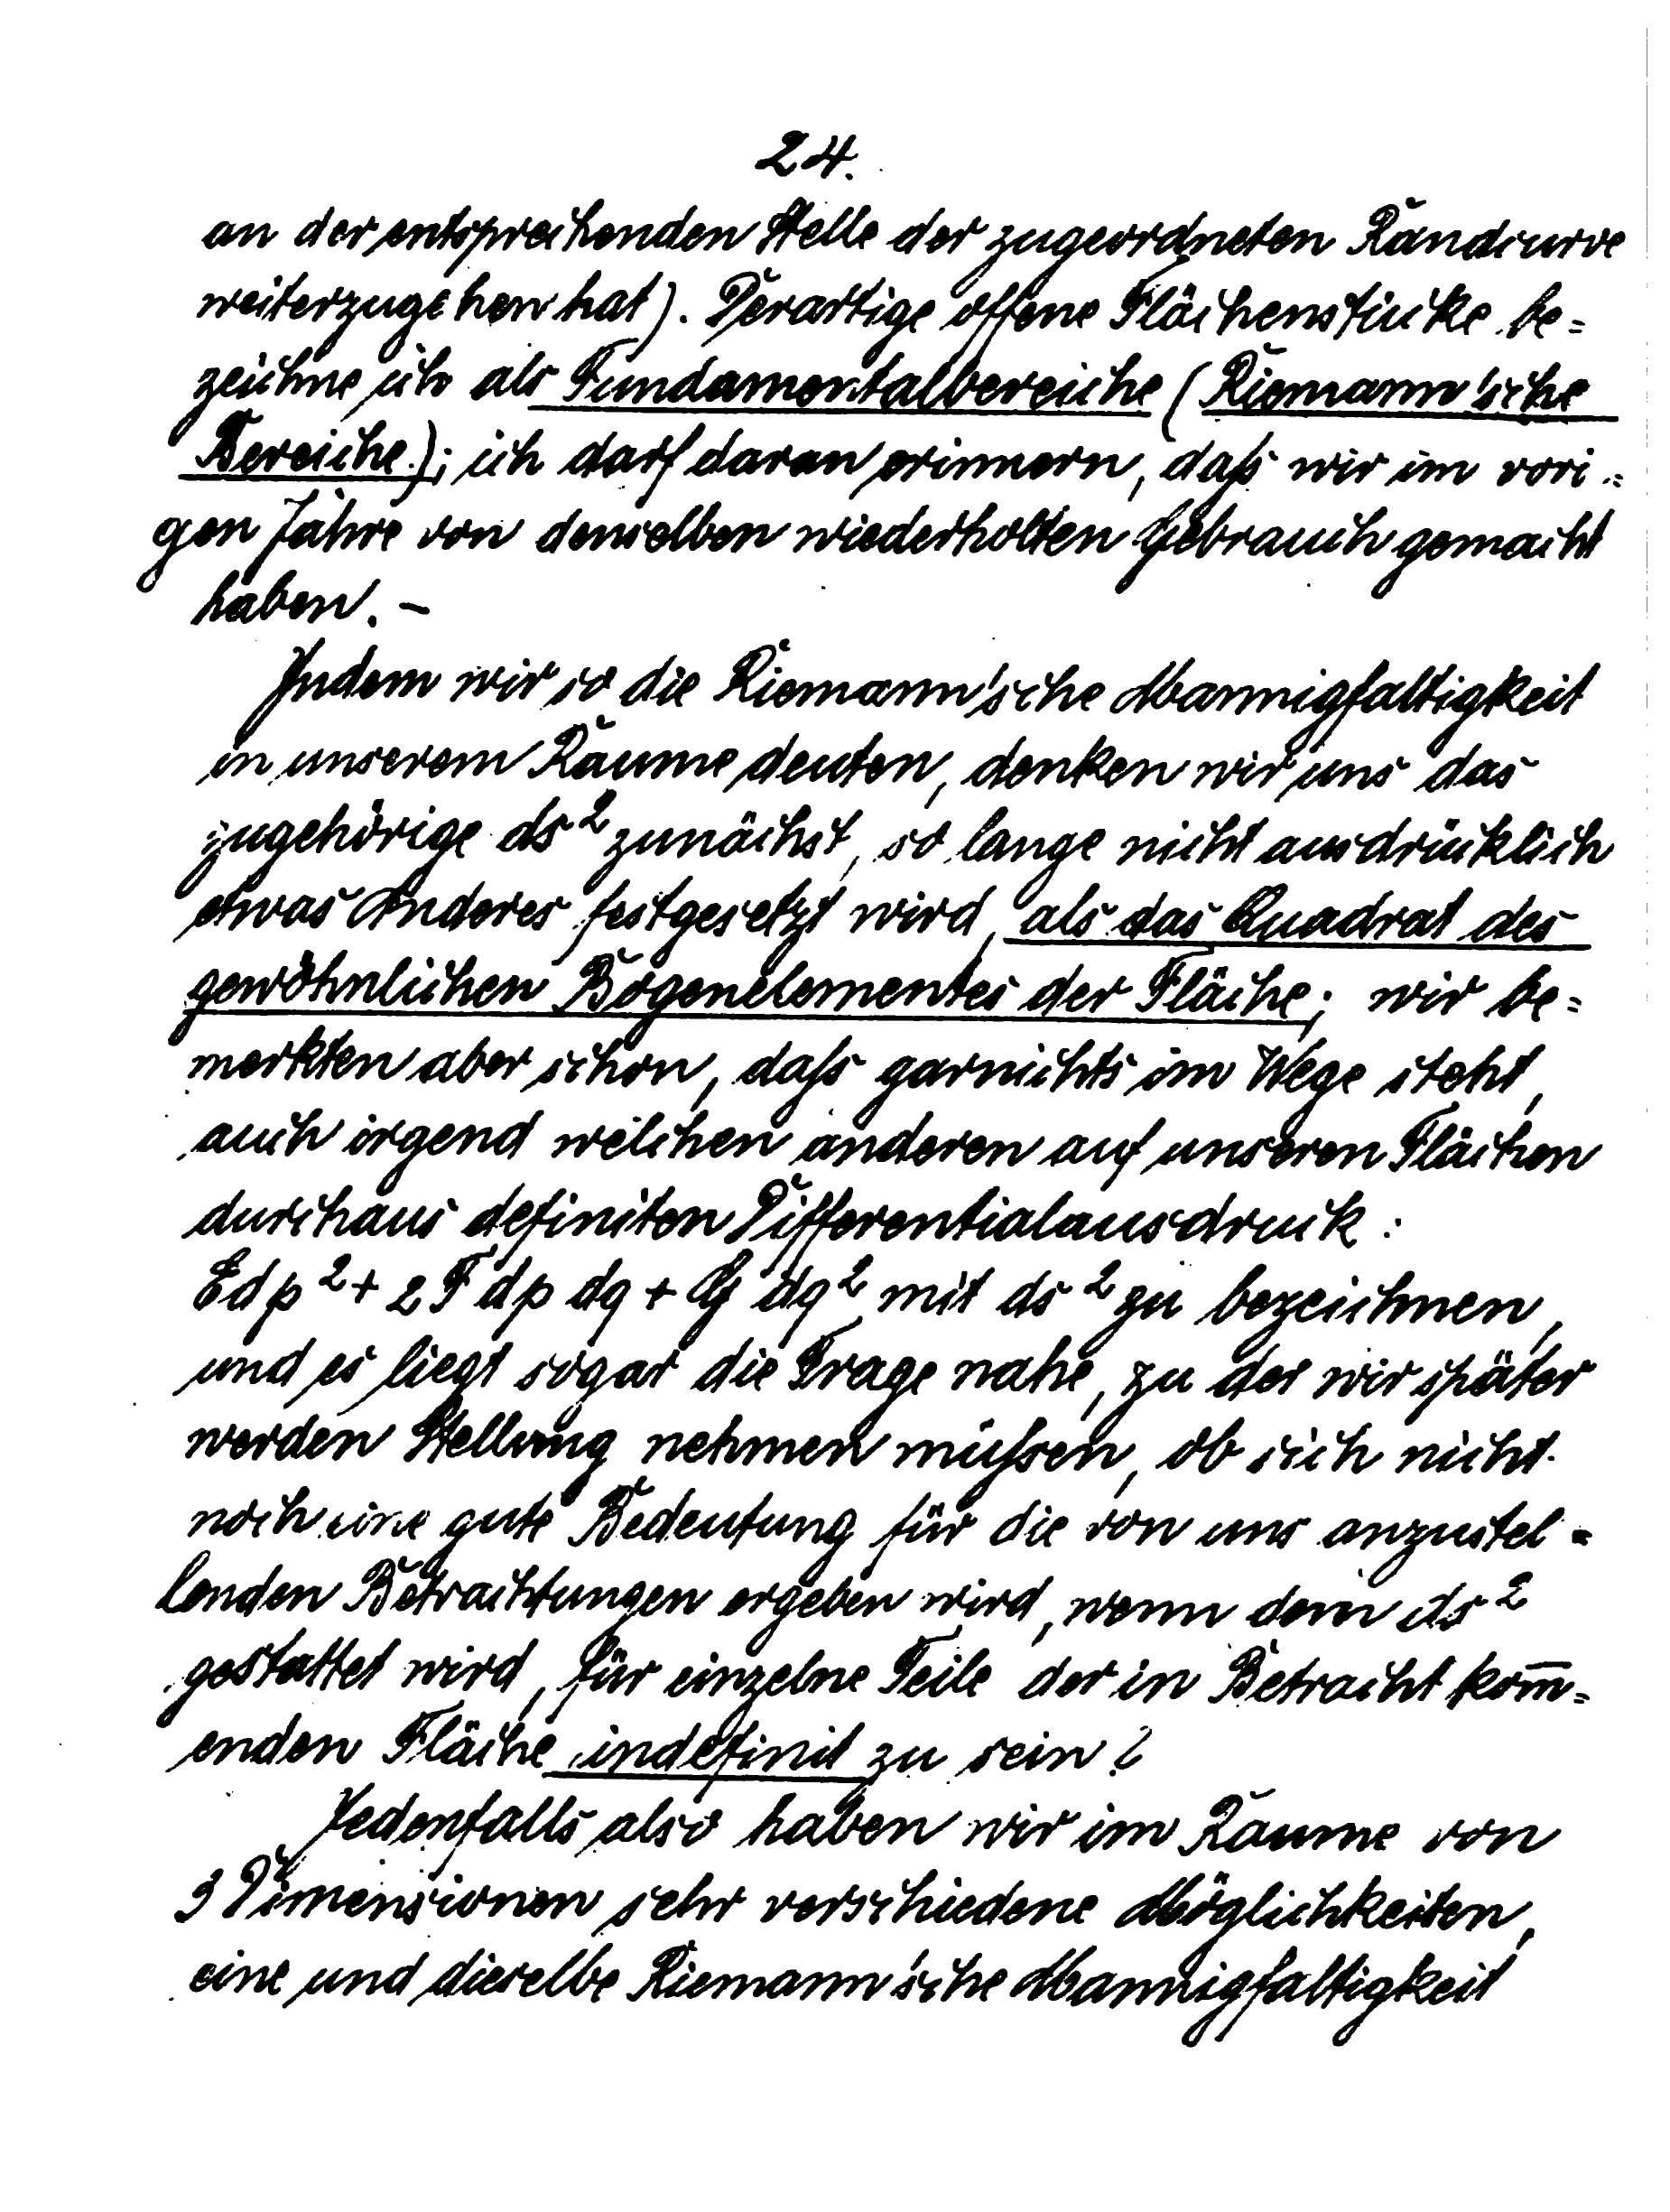 24.
an der entsprechenden Stelle der zugeordneten Randcurve
weiterzugehen hat). Derartige offene Flächenstücke be=
zeichne ich als Fundamentalbereiche (Riemann'sche
Bereiche); ich darf daran erinnern, daſs wir im vori=
gen Jahre von denselben wiederholten Gebrauch gemacht
haben. –
Indem wir so die Riemann'sche Mannigfaltigkeit
in unserem Raume deuten, denken wir uns das
zugehörige ds² zunächst, so lange nicht ausdrücklich
etwas Anderes festgesetzt wird, als das Quadrat des
gewöhnlichen Bogenelementes der Fläche; wir be=
merkten aber schon, daſs garnichts im Wege steht,
auch irgend welchen anderen auf unseren Flächen
durchaus definiten Differentialausdruck:
Edp² + 2F dp dq + G dq² mit ds² zu bezeichnen,
und es liegt sogar die Frage nahe, zu der wir später
werden Stellung nehmen müſsen, ob sich nicht
noch eine gute Bedeutung für die von uns anzustel=
lenden Betrachtungen ergeben wird, wenn dem ds²
gestattet wird, für einzelne Teile der in Betracht kom̅=
enden Fläche indefinit zu sein?
Jedenfalls also haben wir im Raume von
3 Dimensionen sehr verschiedene Möglichkeiten,
eine und dieselbe Riemann'sche Mannigfaltigkeit